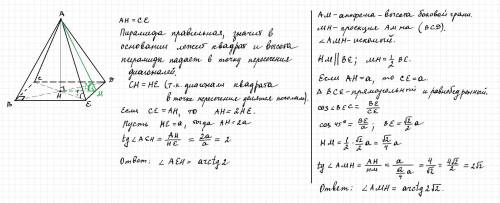 A
B
C
D
E
H
M
AH = CE
Пирамида правильная, значит в
основании лежит квадрат и высота
пирамиды падает в точку пересечения
диагоналей.
CH = HE (т.к. диагонали квадрата
в точке пересечения делятся пополам).
Если CE = AH, то AH = 2HE.
Пусть HE = a, тогда AH = 2a
tg∠AEH = AH/HE = 2a/a = 2
Ответ: ∠AEH = arctg2
AM - апофема - высота боковой грани.
MH - проекция AM на (BCD).
∠AMH - искомый.
HM ∥ BE; MH = 1/2 BE.
Если AH = a, то CE = a.
△BCE - прямоугольный и равнобедренный.
cos∠BEC = BE/CE
cos 45° = BE/a; BE = √2/2 a
HM = 1/2 · √2/2 a = √2/4 a
tg∠AMH = AH/HM = a/(√2/4 a) = 4/√2 = 4√2/2 = 2√2
Ответ: ∠AMH = arctg 2√2.